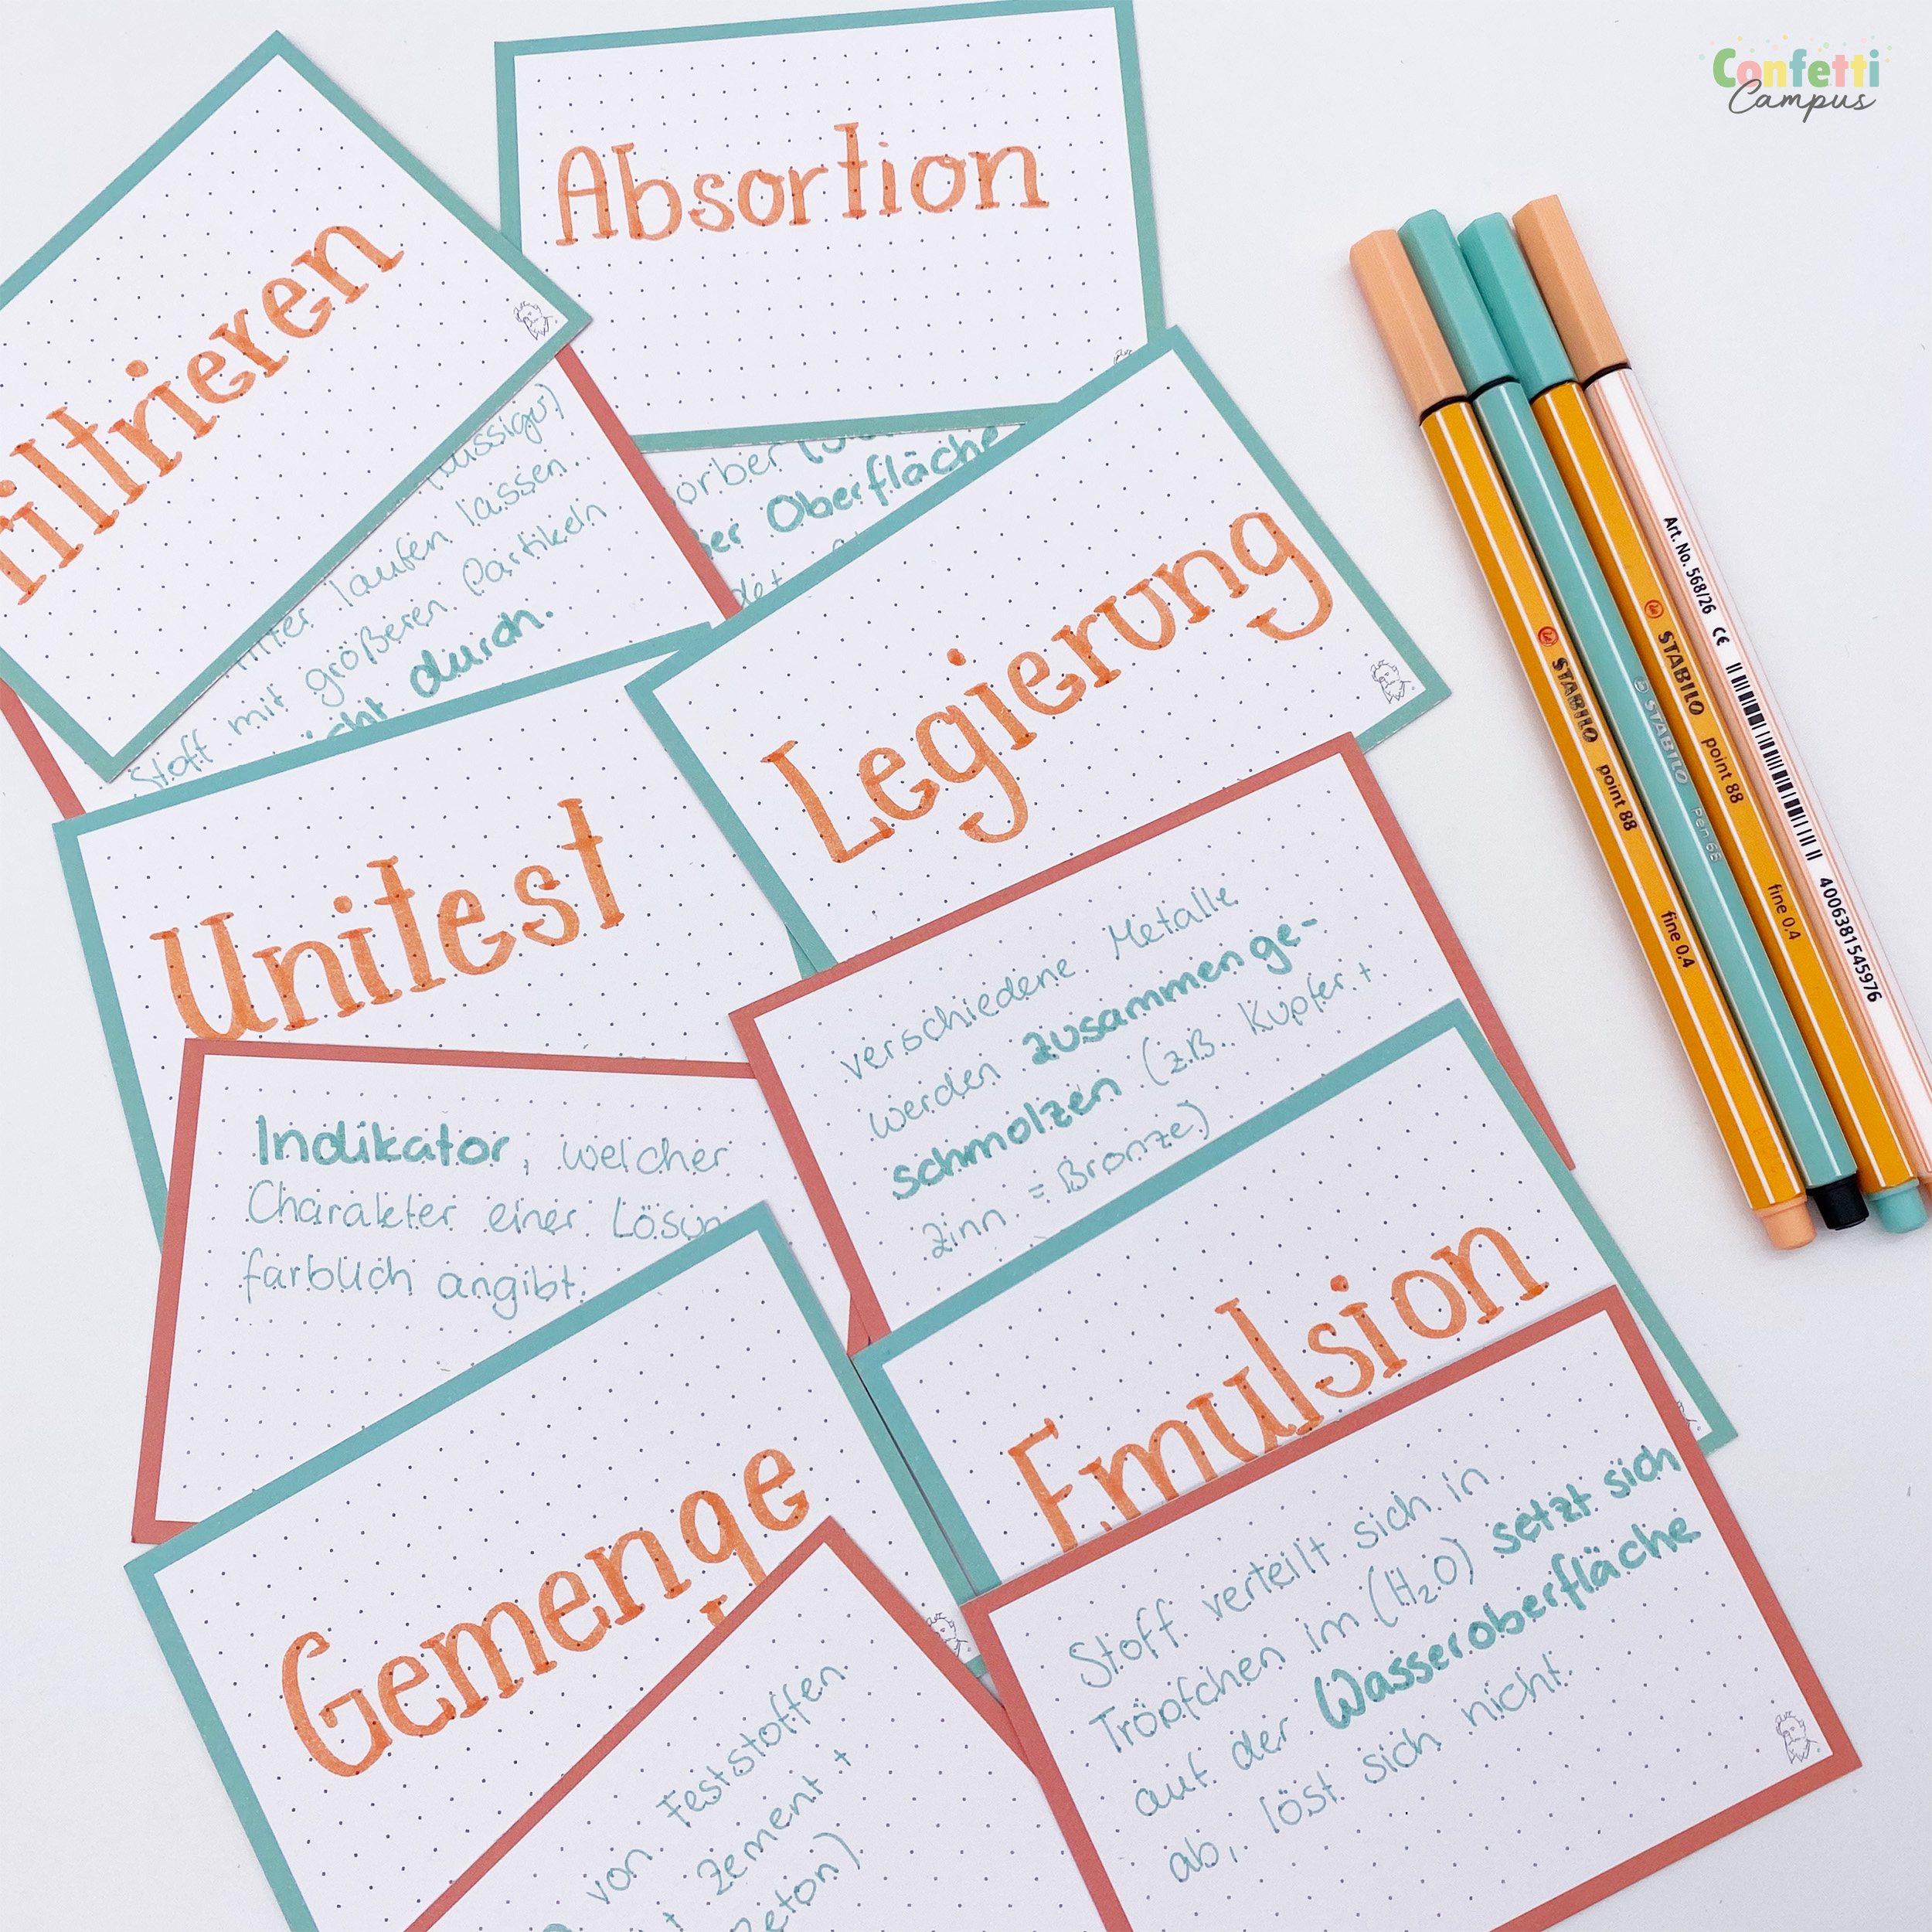 Confetti
Campus
Absortion
Filtrieren
laufen lassen
Stoff mit größeren Partikeln
durch.
Oberfläche
Legierung
Unitest
verschiedene Metalle
werden zusammenge-
schmolzen (z.B. Kupfer +
Zinn = Bronze)
Indikator, welcher
Charakter einer
farblich angibt.
Emulsion
Gemenge
Stoff verteilt sich in
Tröpfchen im (H₂O) setzt sich
auf der Wasseroberfläche
ab, löst sich nicht
von Feststoffen
Zement +
Beton)
STABILO point 88 fine 0.4
STABILO Pen 68
STABILO point 88 fine 0.4
Art. No. 568/26 CE 4006381545976